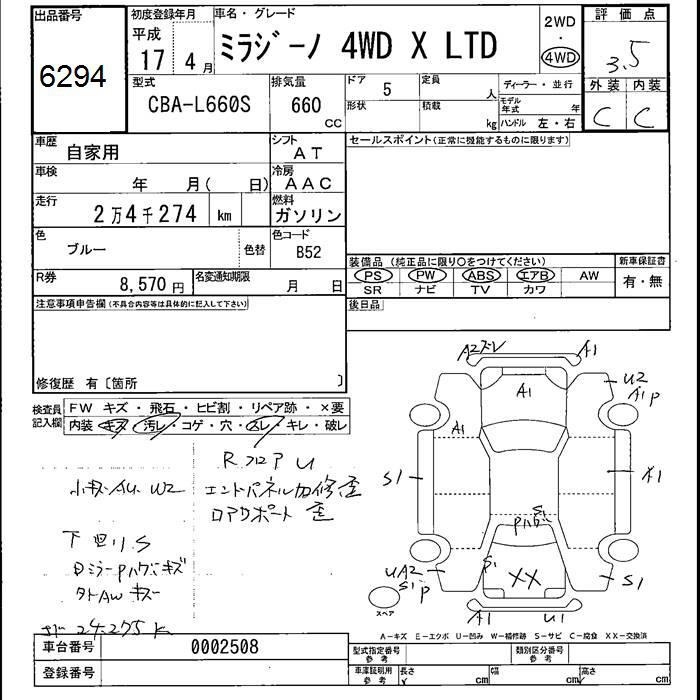 出品番号 初度登録年月 車名・グレード 2WD 評価点
6294 平成 17年 4月 ミラジーノ 4WD X LTD ・ 4WD 3.5
型式 排気量 ドア 5 定員 人 ディーラー・並行 外装 内装
CBA-L660S 660 CC 形状 積載 kg モデル年式 年 ハンドル 左・右 C C
車歴 自家用 シフト AT セールスポイント(正常に機能するものに限ります)
車検 年 月( 日) 冷房 AAC
走行 2万4千274 km 燃料 ガソリン
色 ブルー 色替 色コード B52
装備品 (純正品に限り〇をつけてください) 新車保証書
PS PW ABS エアB AW 有・無
SR ナビ TV カワ
R券 8,570円 名変通知期限 月 日
注意事項申告欄(不具合内容等は具体的に記入して下さい) 後日品
修復歴 有〔箇所 〕
検査員記入欄 FW キズ・飛石・ヒビ割・リペア跡・×要
内装・キズ・汚レ・コゲ・穴・スレ・キレ・破レ
A2ズレ A1
A1 U2
A1P
A1
S1 A1
R フロア U
小キズ・AU. W2 エンドパネル加修歪
ロアサポート 歪
S1
下回リ S
S1 XX
UA2 S1 P S1
スペア
A1 U1
24,275K
A-キズ E-エクボ U-凹み W-補修跡 S-サビ C-腐食 XX-交換済
車台番号 0002508 型式指定番号 参考 類別区分番号 参考
登録番号 車庫証明用 参考 長さ cm 幅 cm 高さ cm